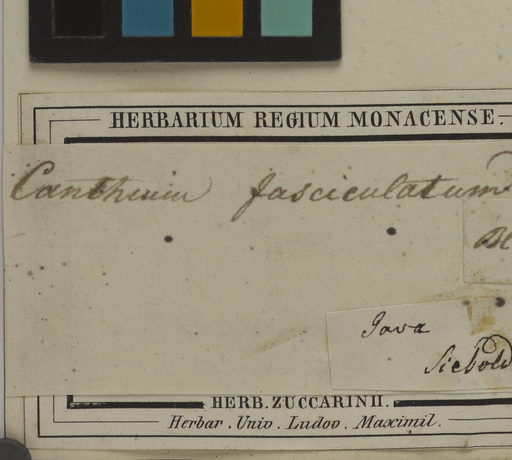 HERBARIUM REGIUM MONACENSE.
Canthium fasciculatum
Bl
Java
Siebold
HERB. ZUCCARINII.
Herbar. Univ. Ludov. Maximil.